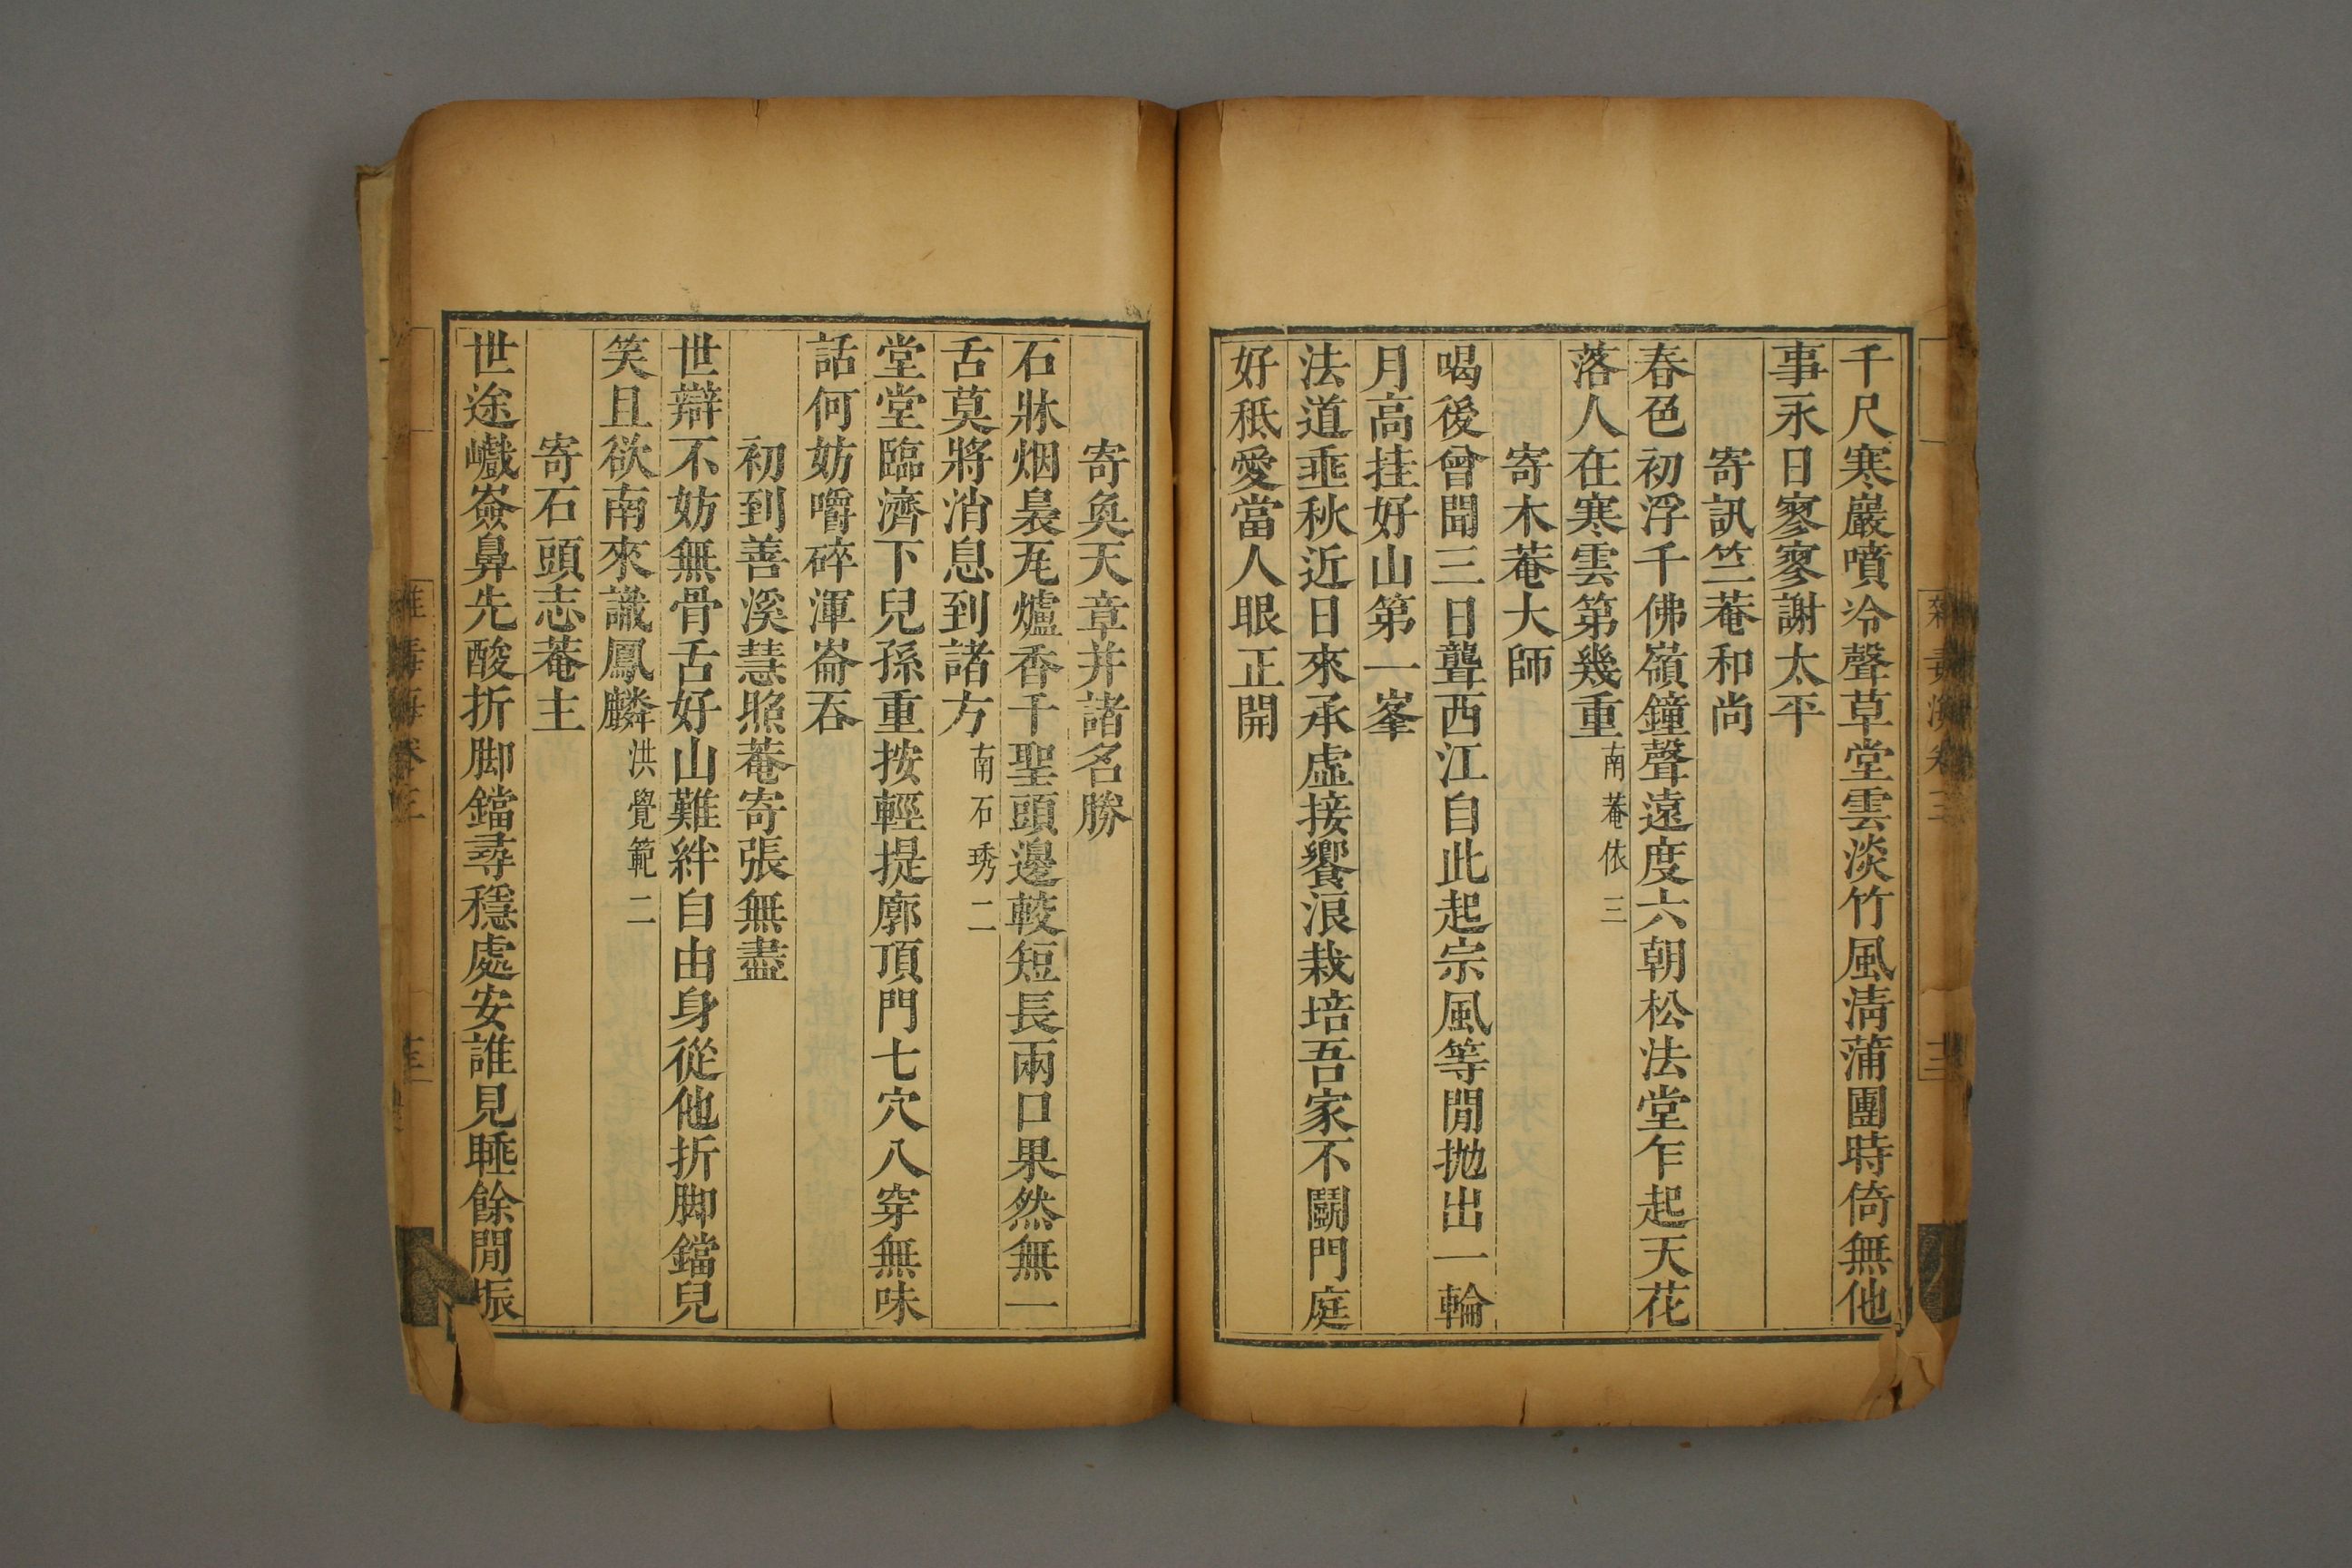 千尺寒巖噴冷聲草堂雲淡竹風淸蒲團時倚無他
事永日寥寥謝太平
寄訊竺菴和尚
春色初浮千佛嶺鐘聲遠度六朝松法堂乍起天花
落人在寒雲第幾重南菴依三
寄木菴大師
喝後曾聞三日聾西江自此起宗風等閒拋出一輪
月高挂好山第一峯
法道垂秋近日來承虛接饗浪栽培吾家不鬭門庭
好秪愛當人眼正開
寄奐天章并諸名勝
石牀烟裊瓦爐香千聖頭邊較短長兩口果然無一
舌莫將消息到諸方南石琇二
堂堂臨濟下兒孫重按輕提廓頂門七穴八穿無味
話何妨嚼碎渾崙吞
初到善溪慧照菴寄張無盡
世辯不妨無骨舌好山難絆自由身從他折脚鐺兒
笑且欲南來識鳳麟洪覺範二
寄石頭志菴主
世途巇嶮鼻先酸折脚鐺尋穩處安誰見睡餘閒振